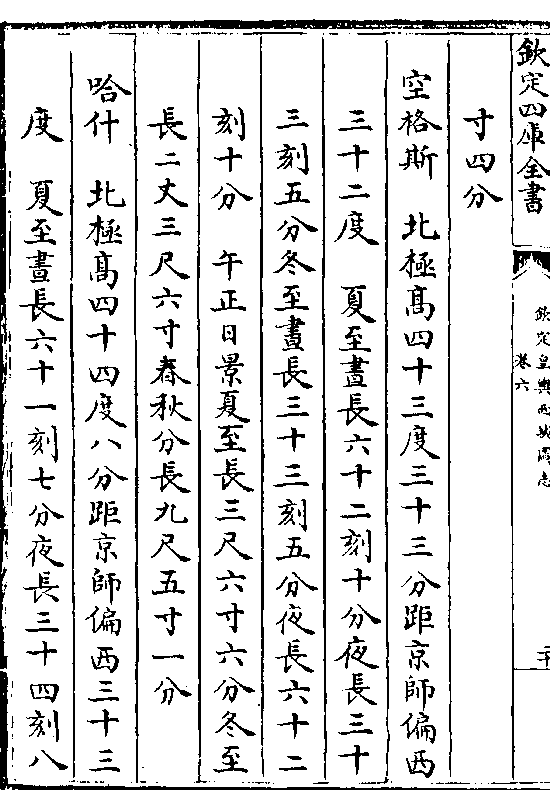 欽定四庫全書
欽定皇輿西域圖志
卷六
二十
寸四分
空格斯　北極高四十三度三十三分距京師偏西
三十二度　夏至晝長六十二刻十分夜長三十
三刻五分冬至晝長三十三刻五分夜長六十二
刻十分　午正日景夏至長三尺六寸六分冬至
長二丈三尺六寸春秋分長九尺五寸一分
哈什　北極高四十四度八分距京師偏西三十三
度　夏至晝長六十一刻七分夜長三十四刻八